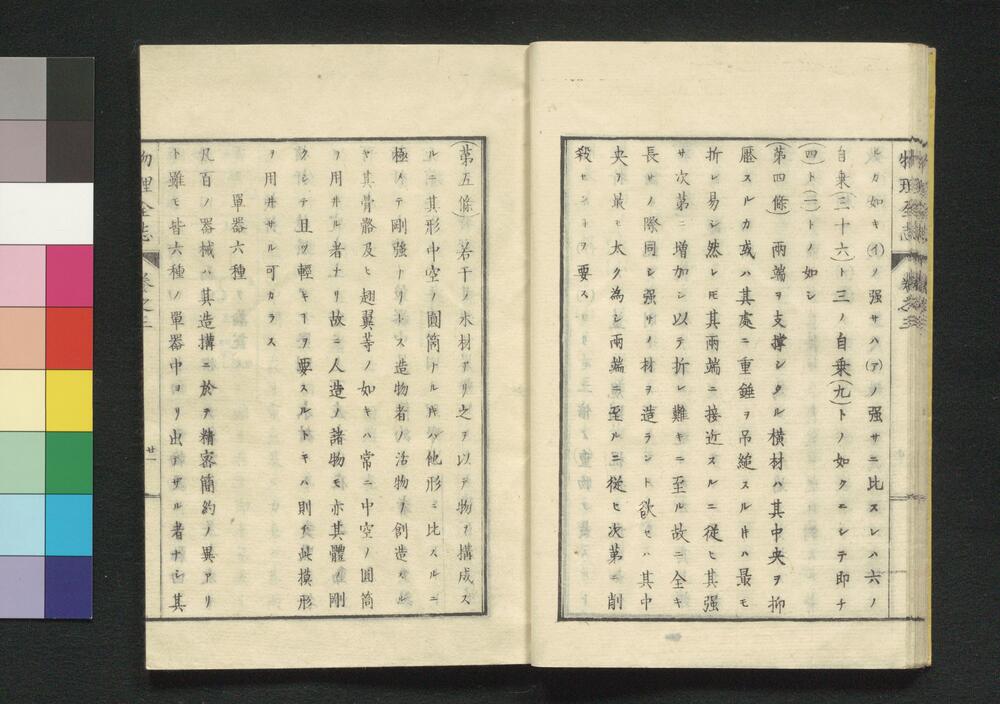 ヒカ如キ(イ)ノ强サハ(ア)ノ强サニ比スレハ六ノ
自乗(三十六)ト三ノ自乗(九)トノ如クニシテ即チ
(四)ト(一)トノ如シ
(第四條) 兩端ヲ支撐シタル横材ハ其中央ヲ抑
壓スルカ或ハ其處ニ重錘ヲ吊縋スル片ハ最モ
折レ易シ然レ𪜈其兩端ニ接近スルニ從ヒ其强
サ次第ニ増加シ以テ折レ難キニ至ル故ニ全キ
長サノ際同シ强サノ材ヲ造ラント欲セハ其中
央ヲ最モ太ク為シ兩端ニ至ルニ從ヒ次第ニ削
殺セヿヲ要ス
(第五條) 若干ノ木材アリ之ヲ以テ物ヲ搆成ス
ルニ其形中空ノ圓筒ナル片ハ他形ニ比スルニ
極メテ剛强ナリトス造物者ノ活物ヲ創造スル
ヤ其骨骼及ヒ翅翼等ノ如キハ常ニ中空ノ圓筒
ヲ用井ル者ナリ故ニ人造ノ諸物モ亦其體ヲ剛
クシテ且ツ輕キヿヲ要スルトキハ則チ此模形
ヲ用井サル可カラス
單器六種
凡百ノ器械ハ其造搆ニ於テ精密簡約ノ異アリ
ト雖モ皆六種ノ單器中ヨリ出テサル者ナシ其
物理全志
卷之三
廿一